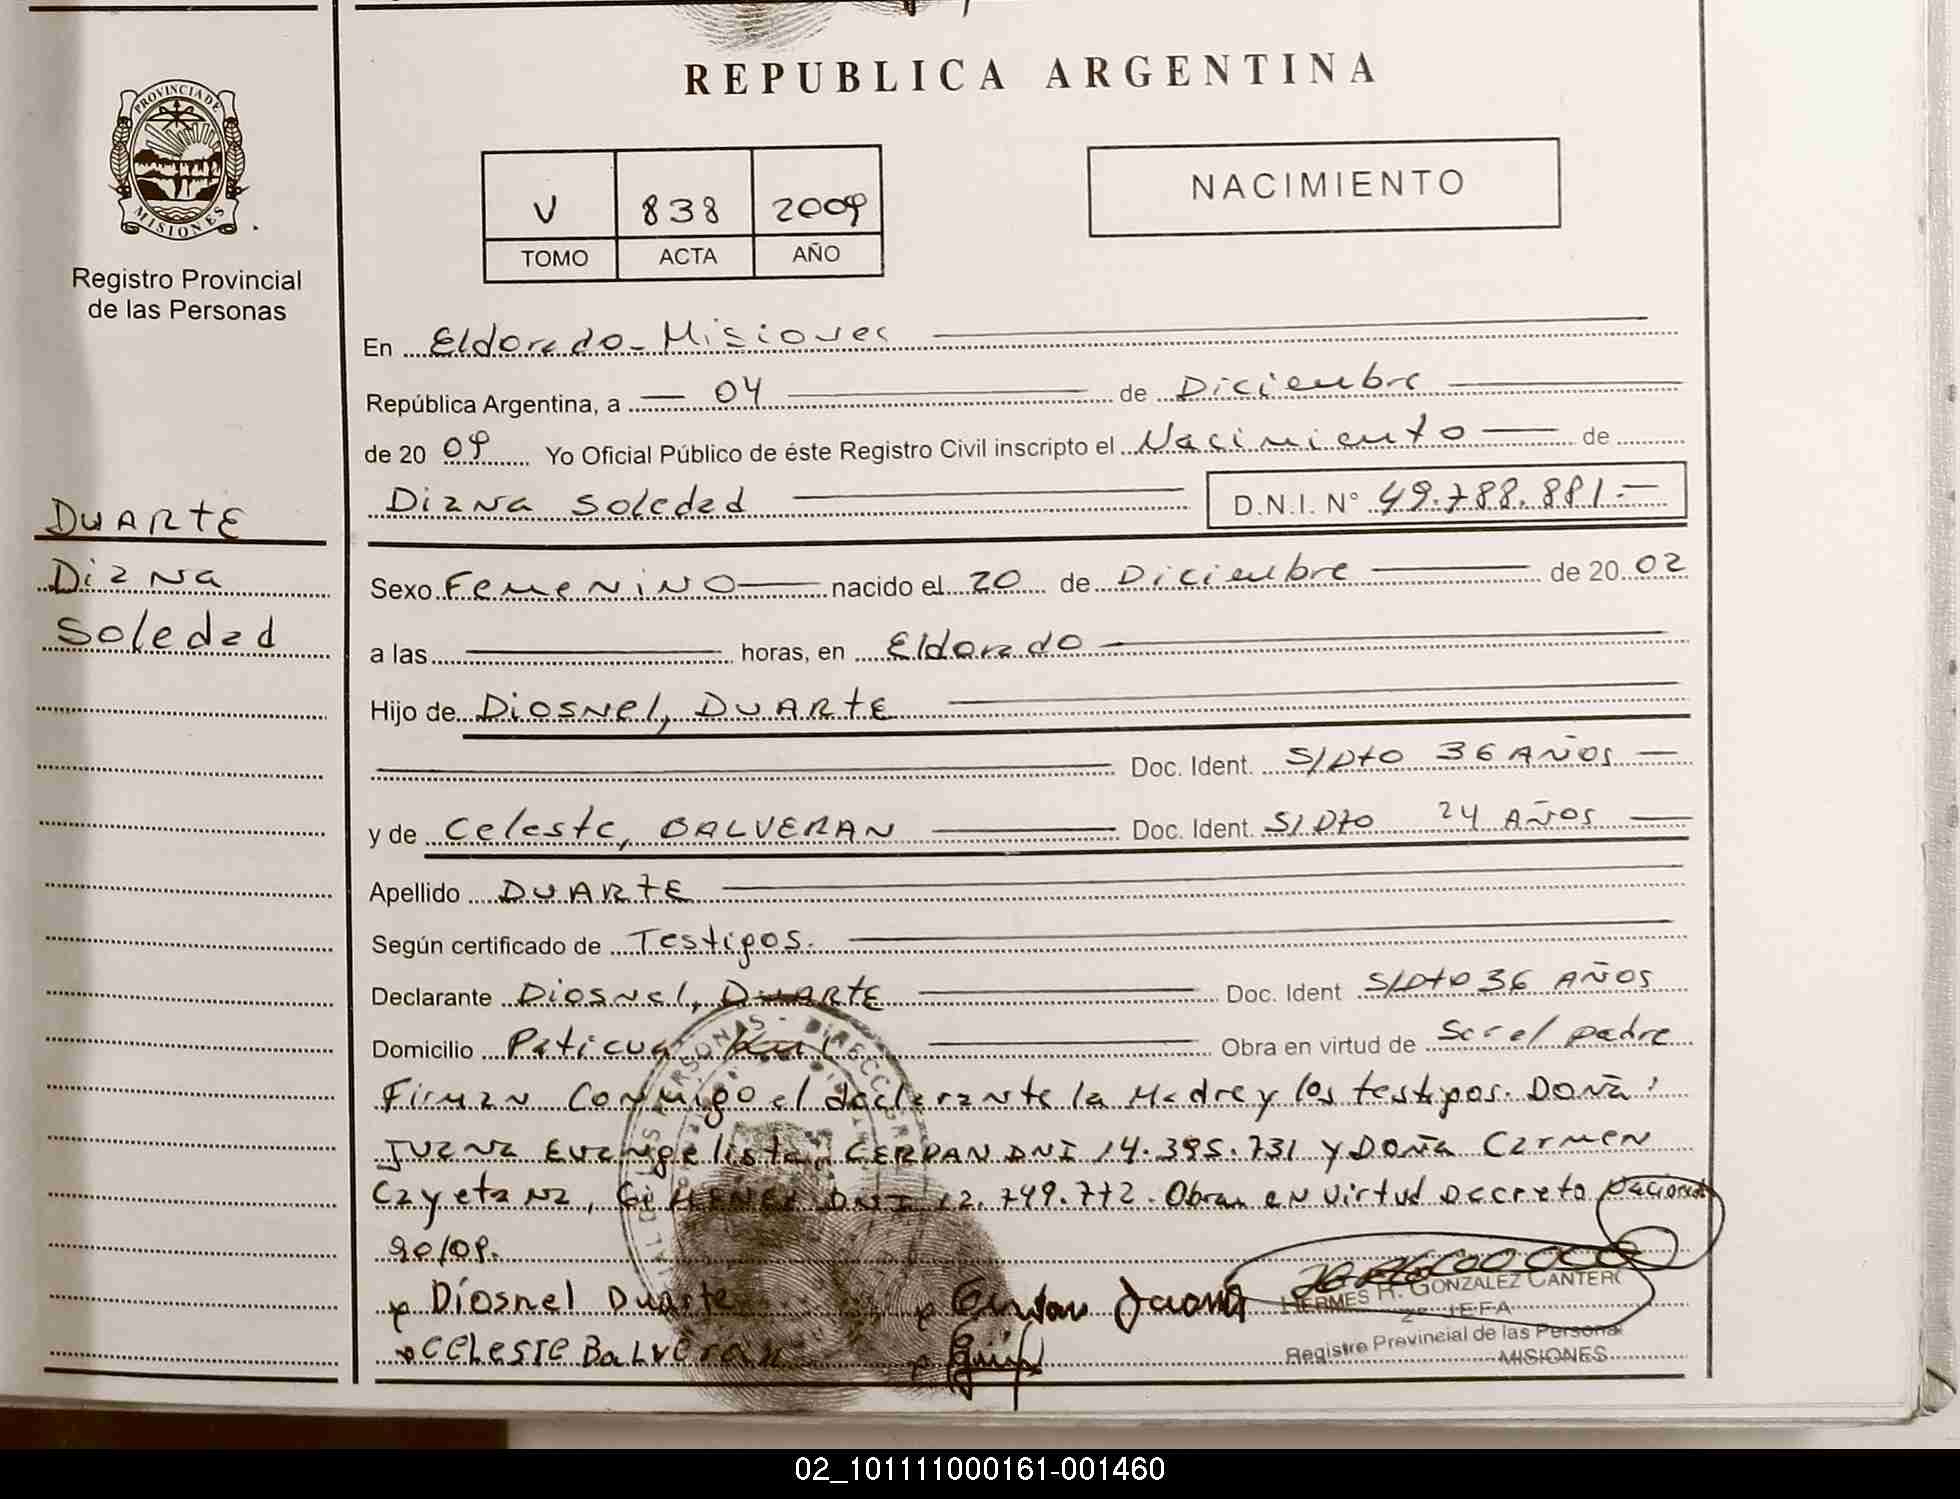 REPUBLICA ARGENTINA
PROVINCIA DE
MISIONES
Registro Provincial
de las Personas
V 838 2009
TOMO ACTA AÑO
NACIMIENTO
En Eldorado - Misiones
República Argentina, a 04 de Diciembre
de 20 09 Yo Oficial Público de éste Registro Civil inscripto el Nacimiento de
Diana Soledad D.N.I. N° 49.788.881.-
DUARTE
Diana
Soledad
Sexo Femenino nacido el 20 de Diciembre de 20 02
a las horas, en Eldorado
Hijo de Diosnel, DUARTE
Doc. Ident. S/Dto 36 AÑOS
y de Celeste, BALVERAN Doc. Ident. S/Dto 24 AÑOS
Apellido DUARTE
Según certificado de Testigos.
Declarante Diosnel, DUARTE Doc. Ident S/Dto 36 AÑOS
Domicilio Obra en virtud de Ser el padre
Firman Conmigo el declarante la Madre y los testigos. DOÑA:
Juana Evangelista, CERDAN DNI 14.395.731 y DOÑA Carmen
Cayetana, GiMENEZ DNI 12.749.772. Obran en virtud Decreto nacional
90/09.
Diosnel Duarte Juana
CELESTE BALVERAN
HERMES R. GONZALEZ CANTERO
2° JEFA
Registro Provincial de las Personas
MISIONES
02_101111000161-001460